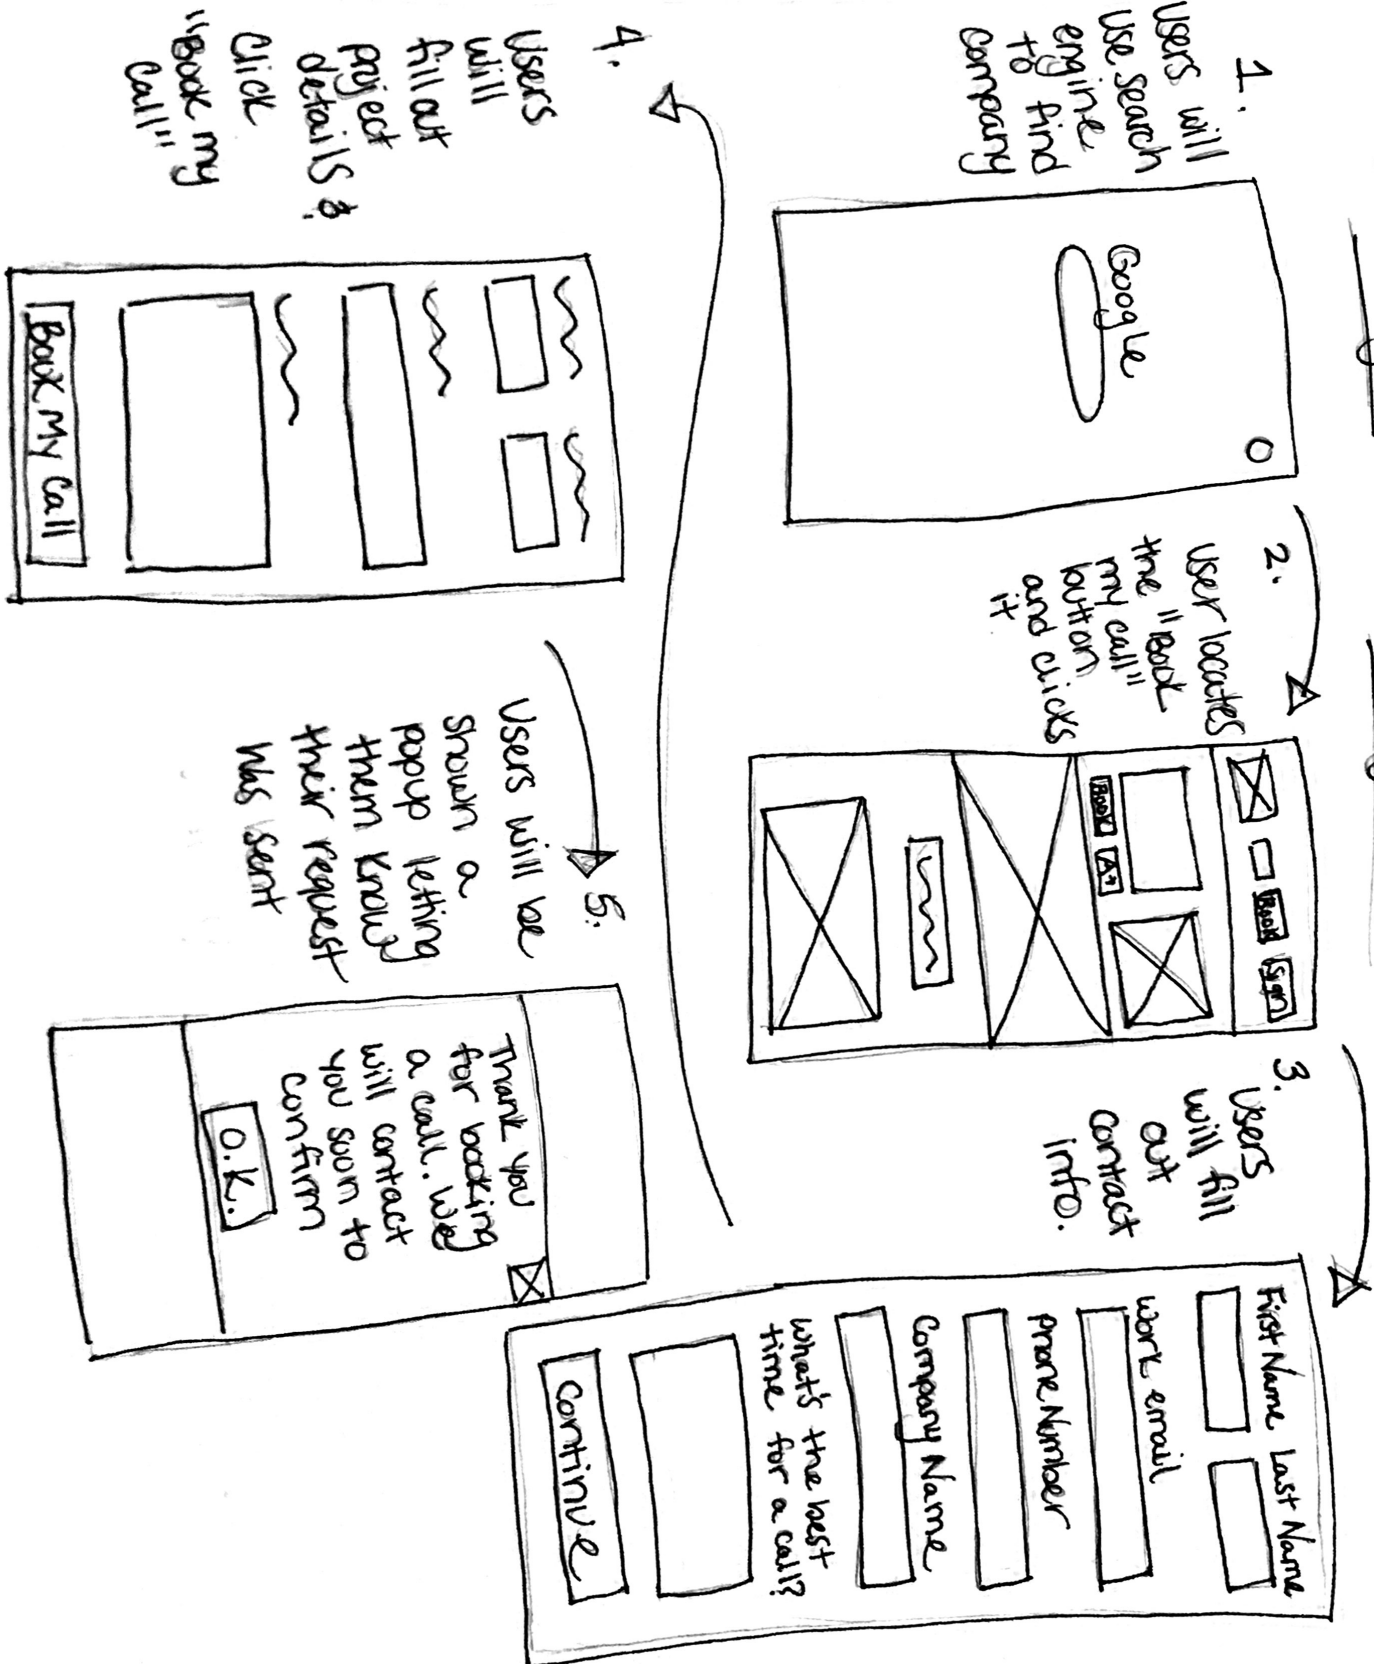 1.
Users will
use search
engine
to find
company
Google
2.
User locates
the "Book
my call"
button
and clicks
it
Book
Sign
Book
3.
Users
will fill
out
contact
info.
First Name Last Name
Work email
Phone Number
Company Name
What's the best
time for a call?
Continue
4.
Users
will
fill out
project
details &
Click
"Book my
Call"
Book My Call
5.
Users will be
shown a
popup letting
them know
their request
was sent
Thank you
for booking
a call. We
will contact
you soon to
confirm
O.K.